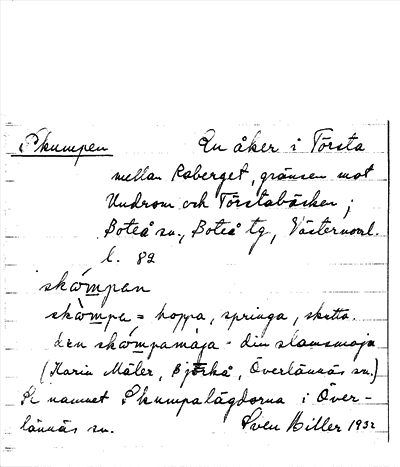 Skumpen En åker i Törsta
mellan Raberget, gränsen mot
Undrom och Törstabäcken;
Boteå sn., Boteå tg, Västernorrl.
l. 82
skômpan
skômpa = hoppa, springa, skutta.
den skômpamaja - din slamsmaja
(Karin Mäler, Björkå, Överlännäs sn.)
Se namnet Skumpalägdorna i Över-
lännäs sn. Sven Hiller 1932